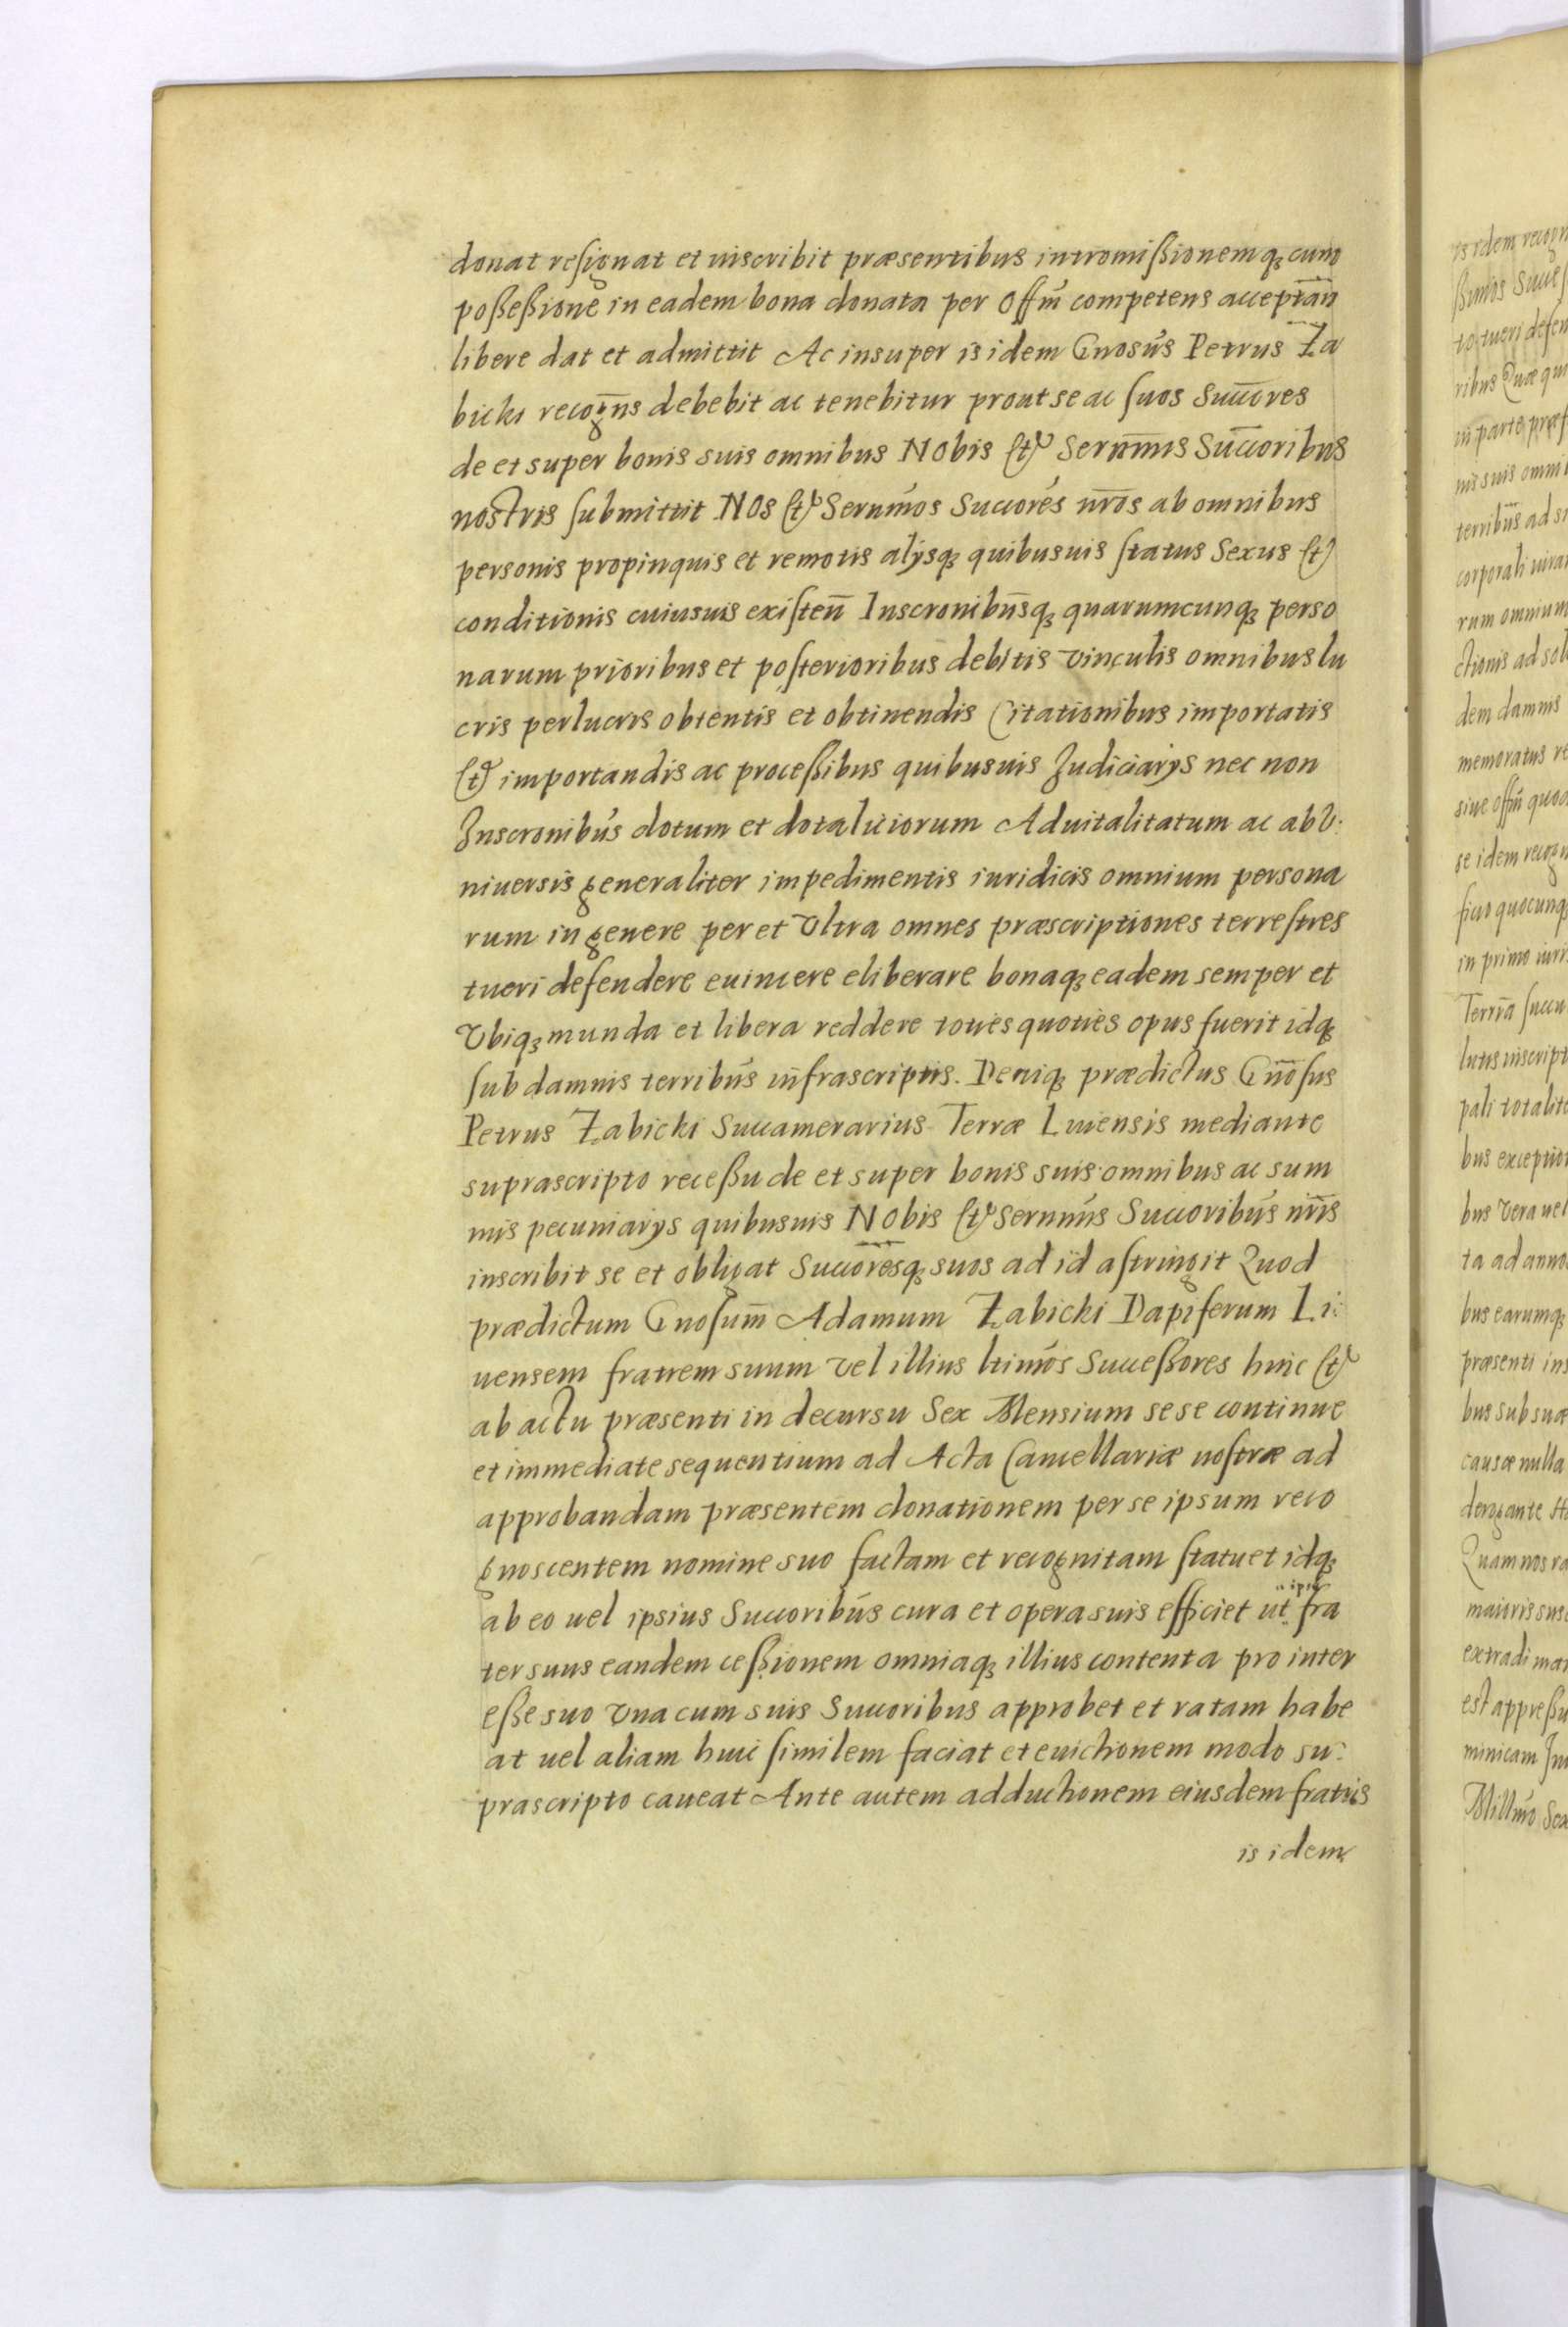 donat resignat et inscribit præsentibus intromißionemq; cum
poßeßione in eadem bona donata per Offm̄ competens acceptan̄
libere dat et admittit Ac insuper is idem Gnosus Petrus Ża
bicki recogn̄s debebit ac tenebitur prout se ac suos Succ̄ores
de et super bonis suis omnibus Nobis Et Serenn̄mis Succ̄oribus
nostris submittit Nos Et Serenm̄os Succores nr̄os ab omnibus
personis propinquis et remotis alijsq; quibusuis status Sexus Et
conditionis cuiusuis existen̄ Inscronibus̄q; quarumcunq; perso
narum prioribus et posterioribus debitis vinculis omnibus lu
cris perlucris obtentis et obtinendis Citationibus importatis
Et importandis ac proceßibus quibusuis Judiciarijs nec non
Inscronibus dotum et dotaliciorum Aduitalitatum ac ab V:
niuersis generaliter impedimentis iuridicis omnium persona
rum in genere per et Vltra omnes præscriptiones terrestres
tueri defendere euincere eliberare bonaq; eadem semper et
Vbiq; munda et libera reddere toties quoties opus fuerit idq;
sub damnis terribus infrascriptis. Deniq; prædictus Gn̄osus
Petrus Żabicki Succamerarius Terræ Liuensis mediante
suprascripto receßu de et super bonis suis omnibus ac sum
mis pecuniarijs quibusuis Nobis Et Serenmis Succoribus nr̄is
inscribit se et obligat Succ̄oresq; suos ad id astringit Quod
prædictum Gnosum̄ Adamum Żabicki Dapiferum Li:
uensem fratrem suum vel illius ltimos Succeßores hinc Et
ab actu præsenti in decursu Sex Mensium sese continue
et immediate sequentium ad Acta Cancellariæ nostræ ad
approbandam præsentem donationem per se ipsum reco
gnoscentem nomine suo factam et recognitam statuet idq;
ab eo uel ipsius Succoribus cura et opera suis efficiet ut fra
ter suus eandem ceßionem omniaq; illius contenta pro inter
eße suo Vna cum suis Succoribus approbet et ratam habe
at uel aliam huic similem faciat et euictionem modo su:
prascripto caueat Ante autem adductionem eiusdem fratris
is idem